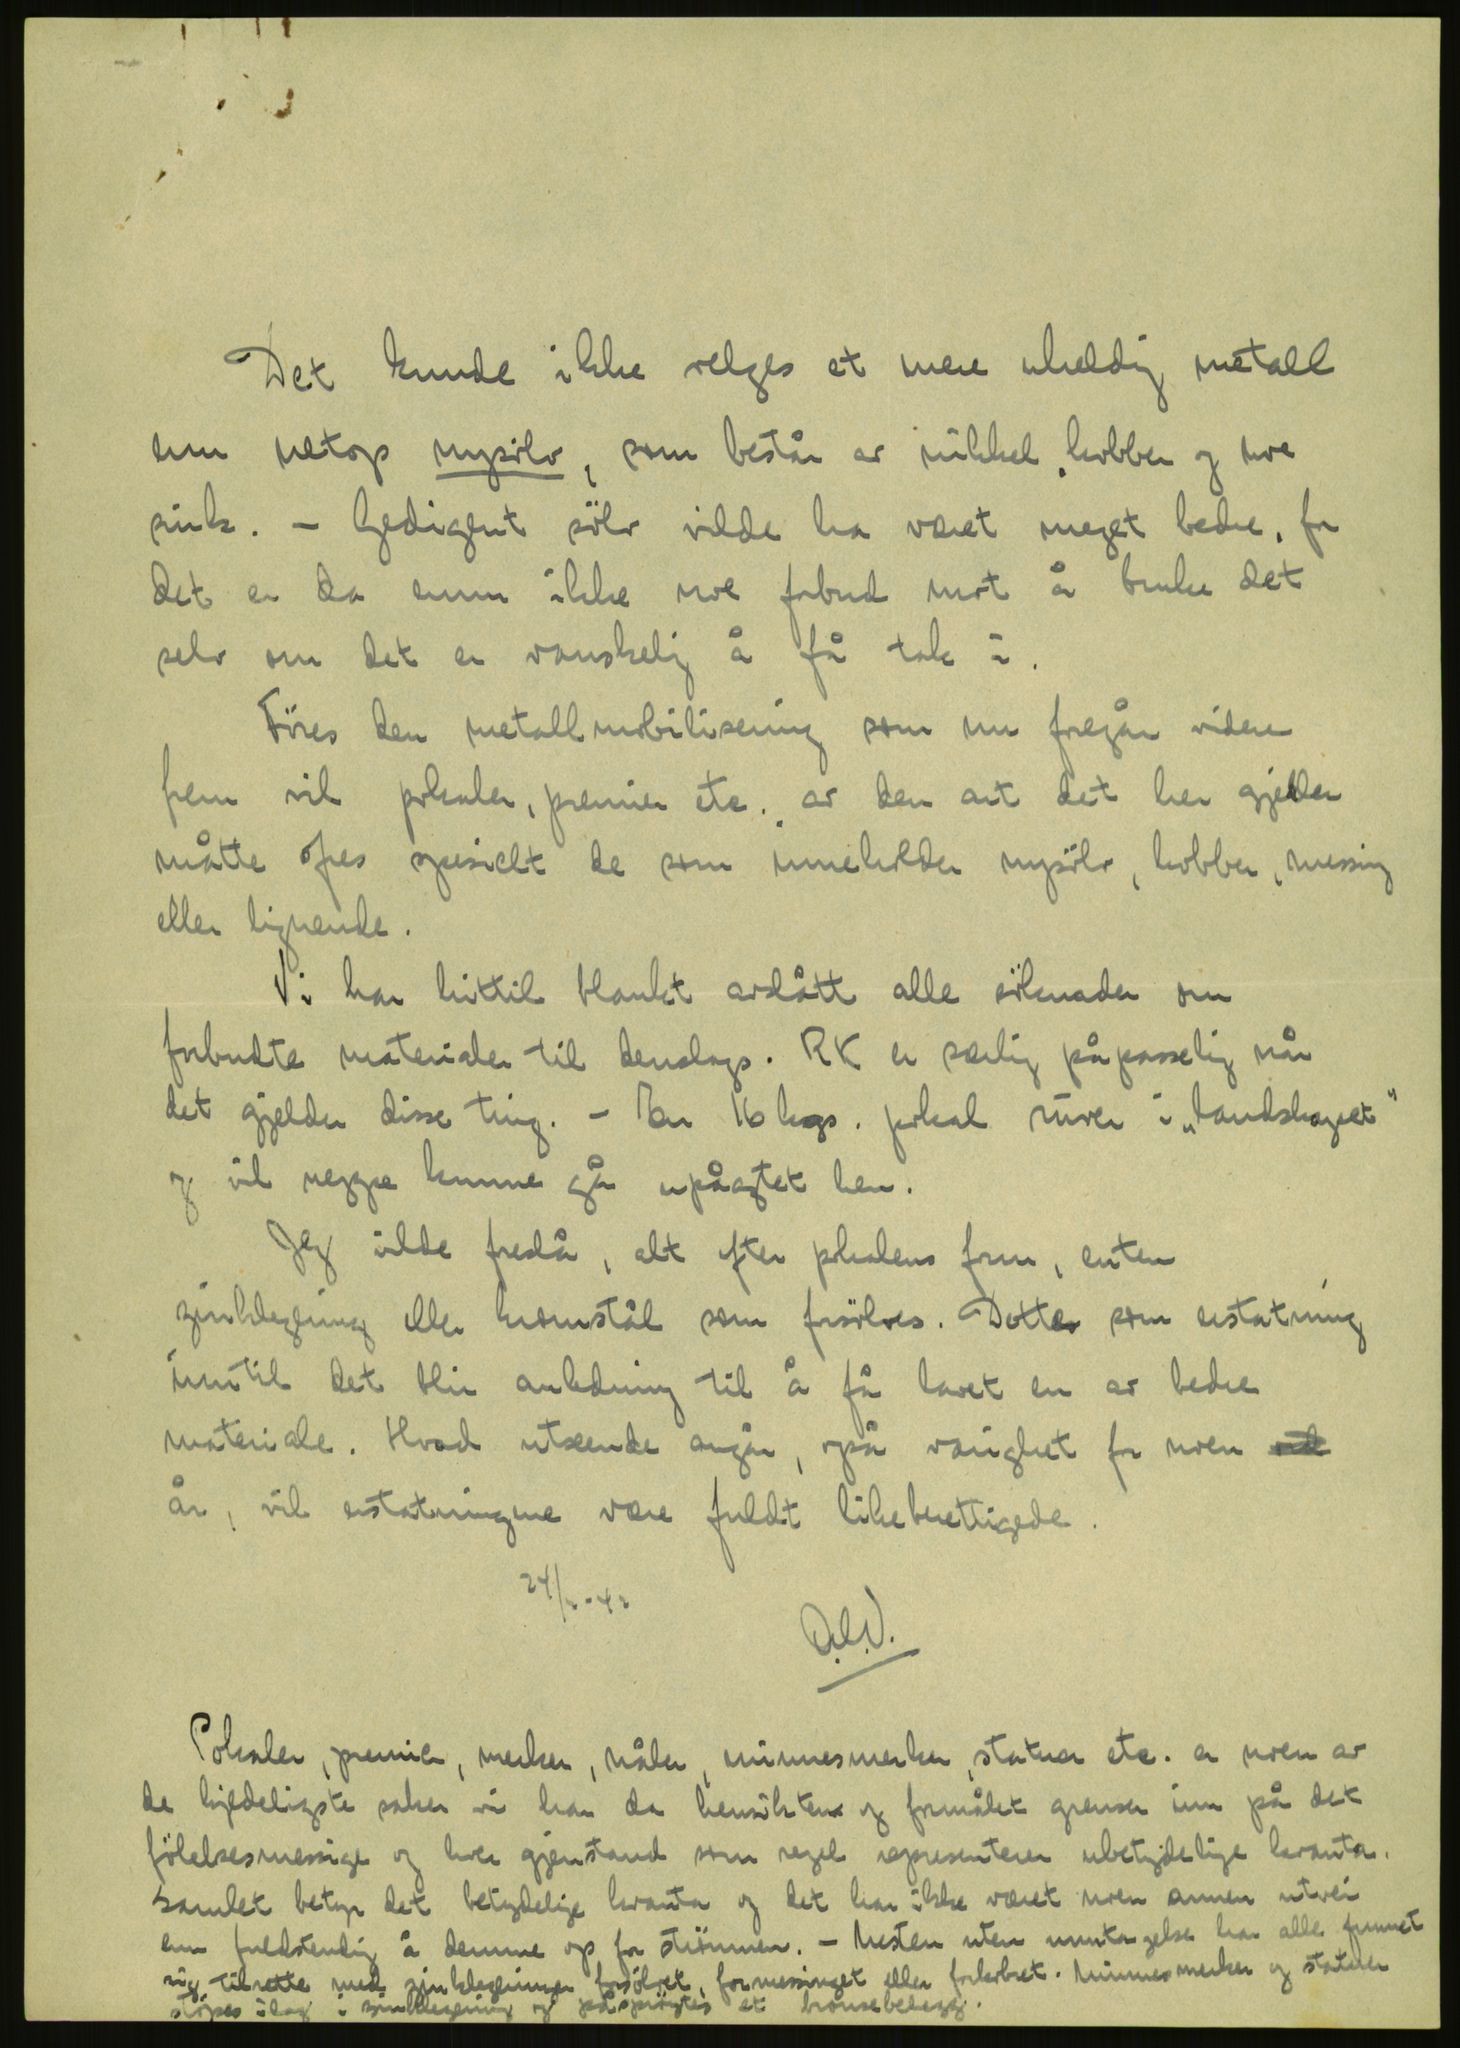 Det kunde ikke velges et mere uheldig metall
enn netop nysölv, som består av nikkel, kobber og noe
sink. - Gedigent sölv vilde ha været meget bedre, for
det er da ennu ikke noe forbud mot å bruke det
selv om det er vanskelig å få tak i.
Föres den metallmobilisering som nu foregår videre
frem vil pokaler, premier etc. av den art det her gjelder
måtte ofres specielt de som inneholder nysölv, kobber, messing
eller lignende.
Vi har hittil blankt avslått alle söknader om
forbudte materialer til denslags. RK er særlig påpasselig når
det gjelder disse ting. - En 16 kgs. pokal ruver i „landskapet"
og vil neppe kunne gå upåagtet hen.
Jeg vilde foreslå, alt efter pokalens form, enten
zinklegering eller kromstål som forsölves. Dette som erstatning
inntil det blir anledning til å få lavet en av bedre
materiale. Hvad utseende angår, også varighet for noen
år, vil erstatningene være fuldt likeberettigede.
O.L.V.
Pokaler, premier, merker, nåler, minnesmerker, statuer etc. er noen av
de kjedeligste saker vi har da hensikten og formålet grenser inn på det
fölelsesmessige og hver gjenstand som regel representerer ubetydelige kvanta.
Samlet betyr det betydelige kvanta og det har ikke været noen annen utvei
enn fuldstendig å demme op for strömmen. - Nesten uten unntagelse har alle funnet
sig tilrette med zinklegeringer forsölvet, formessinget eller forkobret. Minnesmerker og statuer
støpes idag i zinklegering og påsprøytes et bronsebelegg.